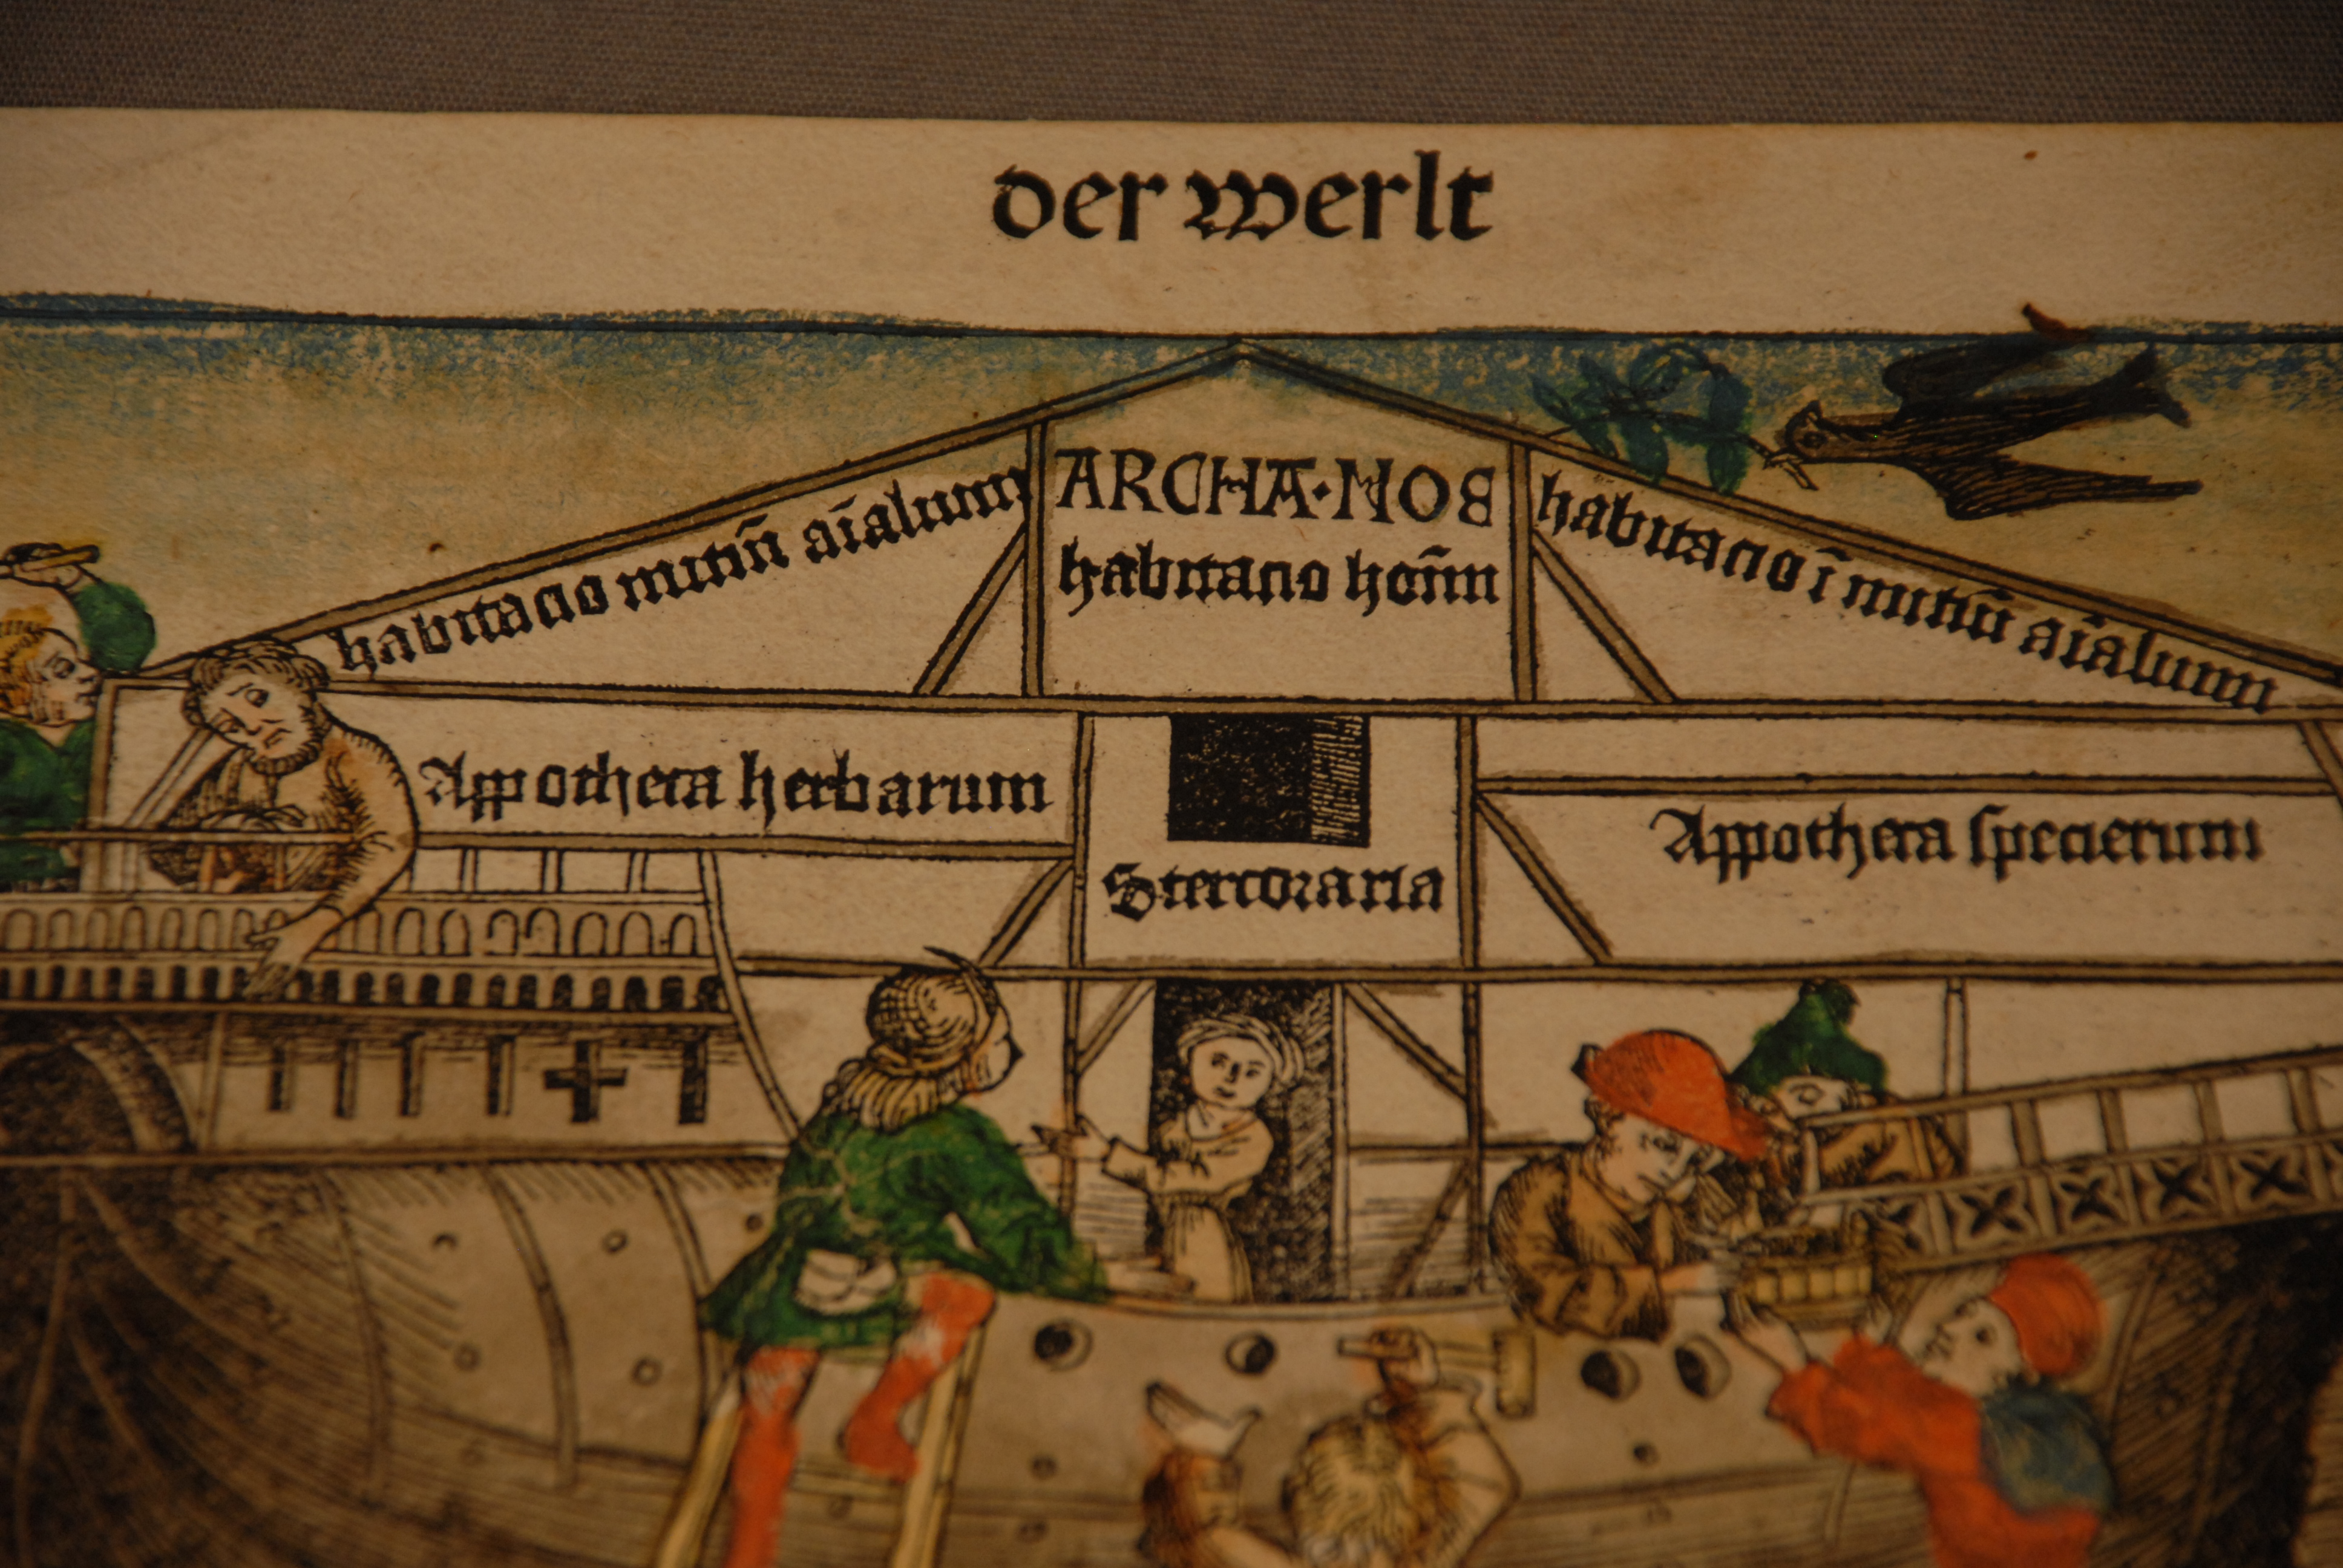 der werlt
ARCHA·NOE
habitacio mitiū aīalium
habitacio hoīm
habitacio īmitiū aīalium
Appotheca herbarum
Stercoraria
Appotheca specierum